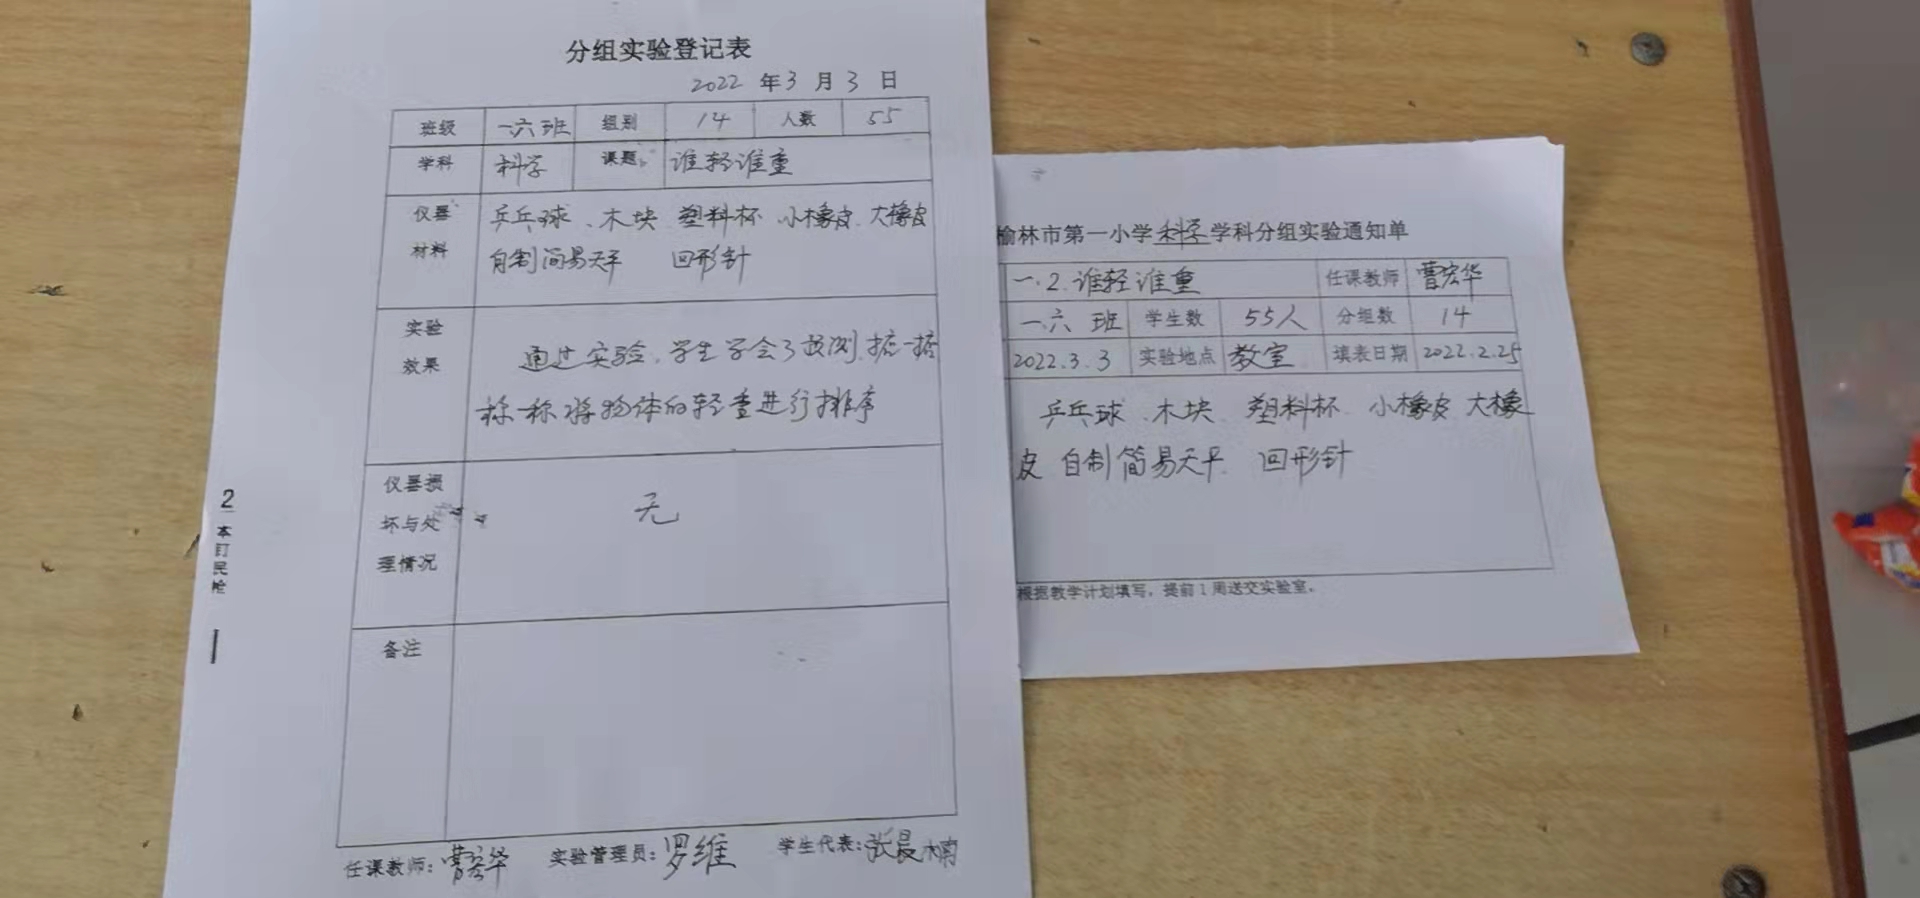 分组实验登记表
2022 年 3 月 3 日
班级 一六班 组别 14 人数 55
学科 科学 课题 谁轻谁重
仪器材料 乒乓球、木块 塑料杯 小橡皮、大橡皮
自制简易天平 回形针
实验效果 通过实验,学生学会了预测、掂一掂
称一称将物体的轻重进行排序
仪器损坏与处理情况 无
备注
任课教师:曹宏华 实验管理员:罗维 学生代表:张晨楠
榆林市第一小学科学学科分组实验通知单
一.2.谁轻谁重 任课教师 曹宏华
一六 班 学生数 55人 分组数 14
2022.3.3 实验地点 教室 填表日期 2022.2.25
乒乓球、木块 塑料杯 小橡皮 大橡
皮 自制简易天平 回形针
根据教学计划填写,提前1周送交实验室。